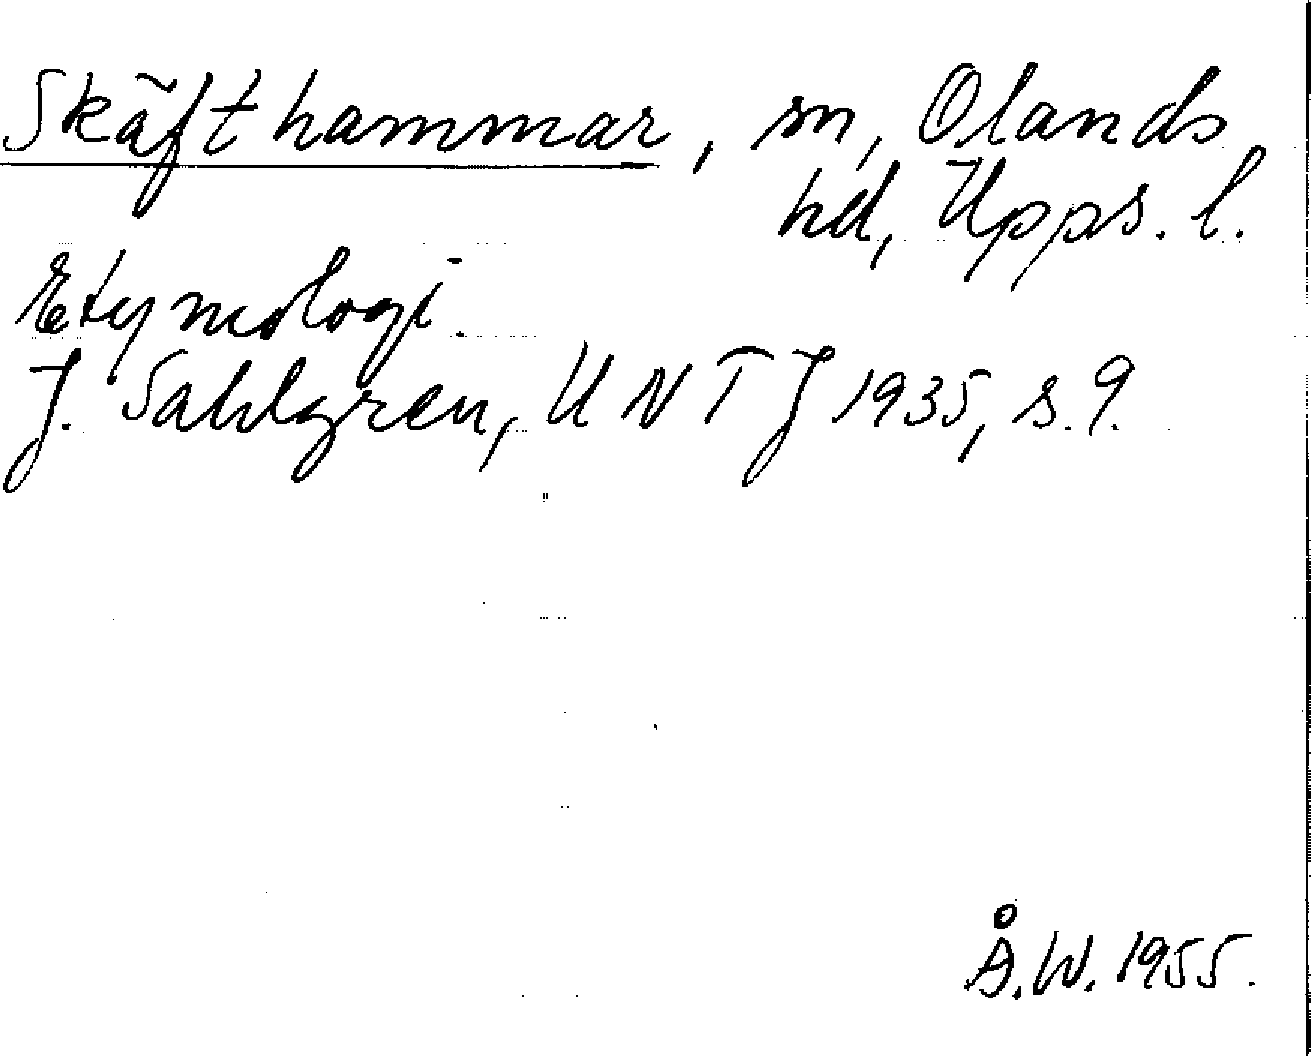 Skäfthammar, sn, Olands
hd, Upps. l.
Etymologi.
J. Sahlgren, UNTJ 1935, s. 9.
Å.W. 1955.